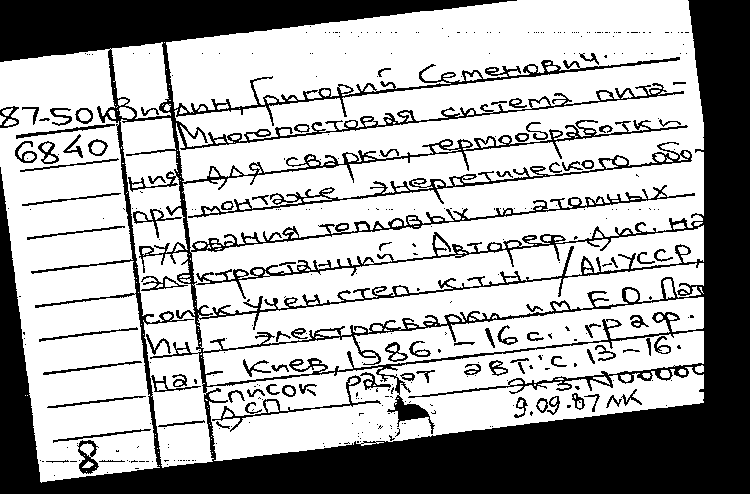 87-50К Зислин, Григорий Семенович.
6840 Многопостовая система пита-
ния для сварки, термообработки
при монтаже энергетического обо-
рудования тепловых и атомных
электростанций: Автореф. дис. на
соиск. учен. степ. к.т.н. / АНУССР,
Ин-т электросварки им. Е.О. Пат
на. - Киев, 1986. - 16 с.: граф.
Список работ авт.: с. 13-16.
Дсп. экз. N00000
9.09.87 МК
8